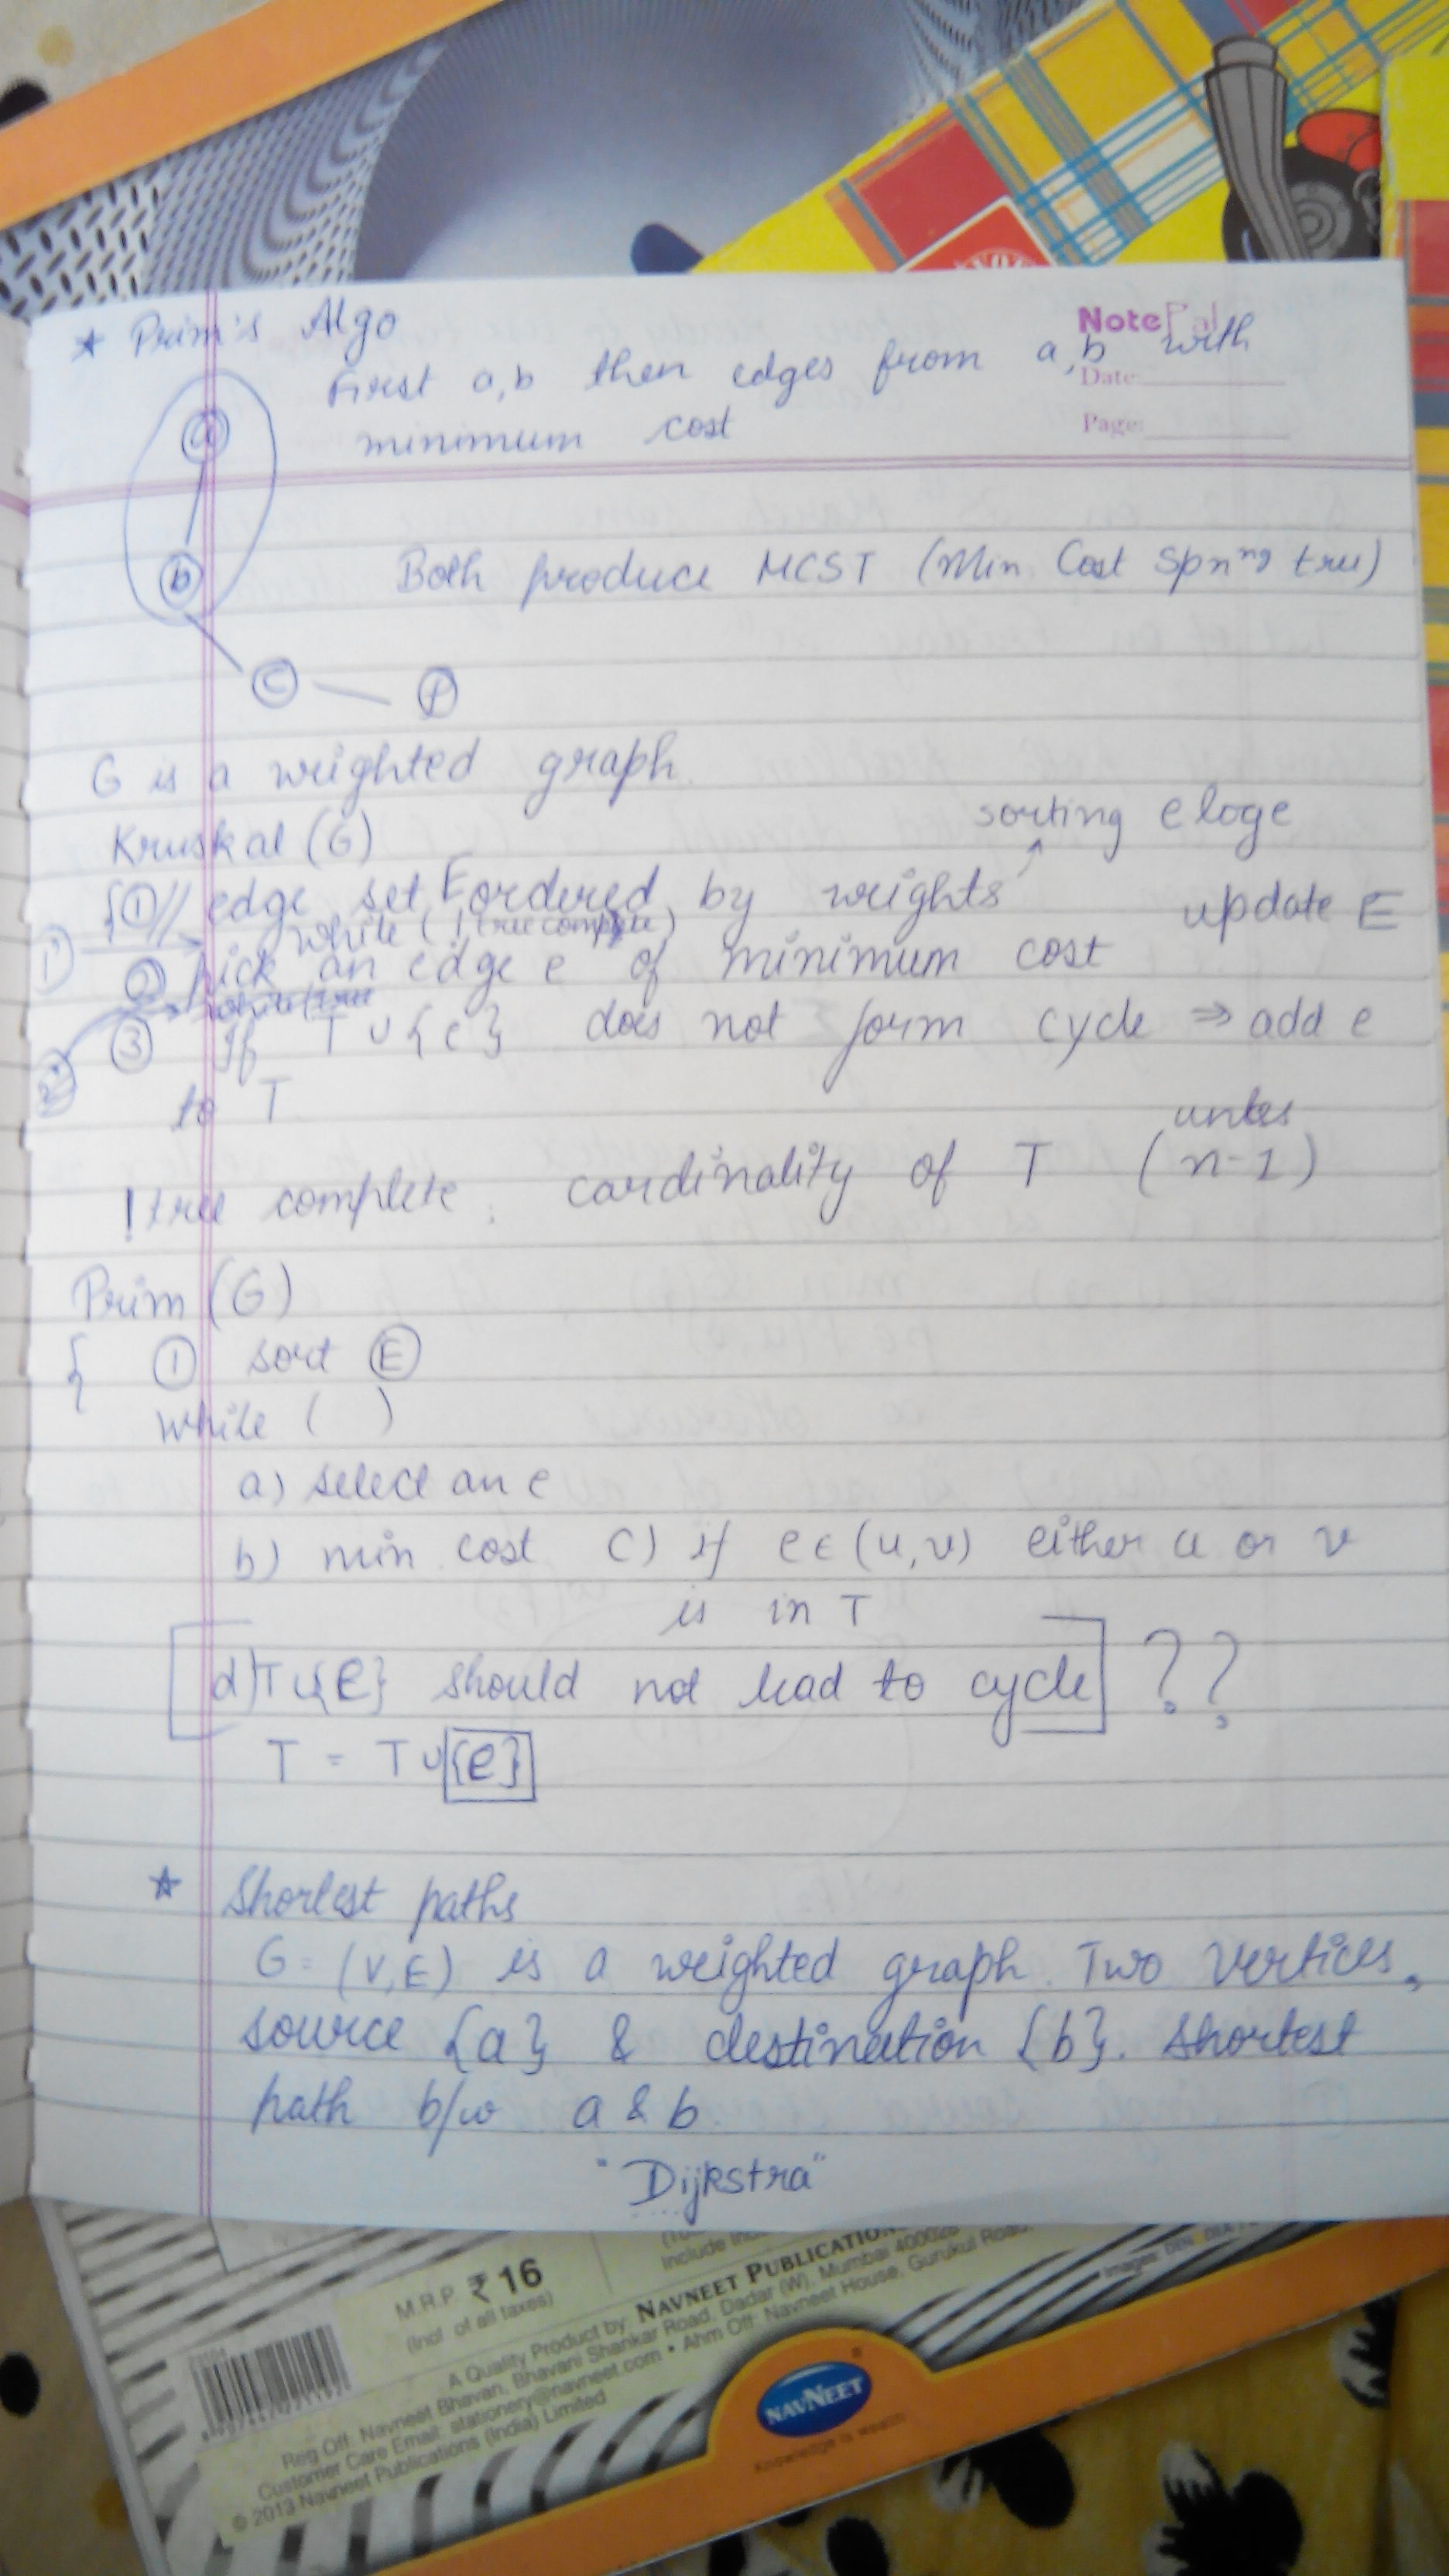 ★ Prim's Algo
NotePal
First a,b then edges from a,b with
Date:
minimum cost
Page:
a
b
Both produce MCST (Min Cost Spnⁿᵍ tree)
c
G is a weighted graph.
sorting edge
Kruskal (G)
{ ① // edge set E ordered by weights
update E
while (!tree complete)
1'
② pick an edge e of minimum cost
③ If T ∪ {e} does not form cycle ⇒ add e
to T
!tree complete : cardinality of T (n-1)
Prim (G)
{ ① sort E
while ( )
a) select an e
b) min cost c) if e ∈ (u,v) either u or v
is in T
[d) T ∪ {e} should not lead to cycle] ??
T = T ∪ {e}
★ Shortest paths
G = (V,E) is a weighted graph. Two vertices,
source {a} & destination {b}. Shortest
path b/w a & b.
"Dijkstra"
M.R.P. ₹ 16
(Incl of all taxes)
A Quality Product by NAVNEET PUBLICATIO
Reg Off: Navneet Bhavan, Bhavani Shankar Road, Dadar (W), Mumbai 400028
Customer Care Email: stationery@navneet.com • Ahm Off: Navneet House, Gurukul Road,
© 2013 Navneet Publications (India) Limited
NAVNEET
Knowledge is Wealth